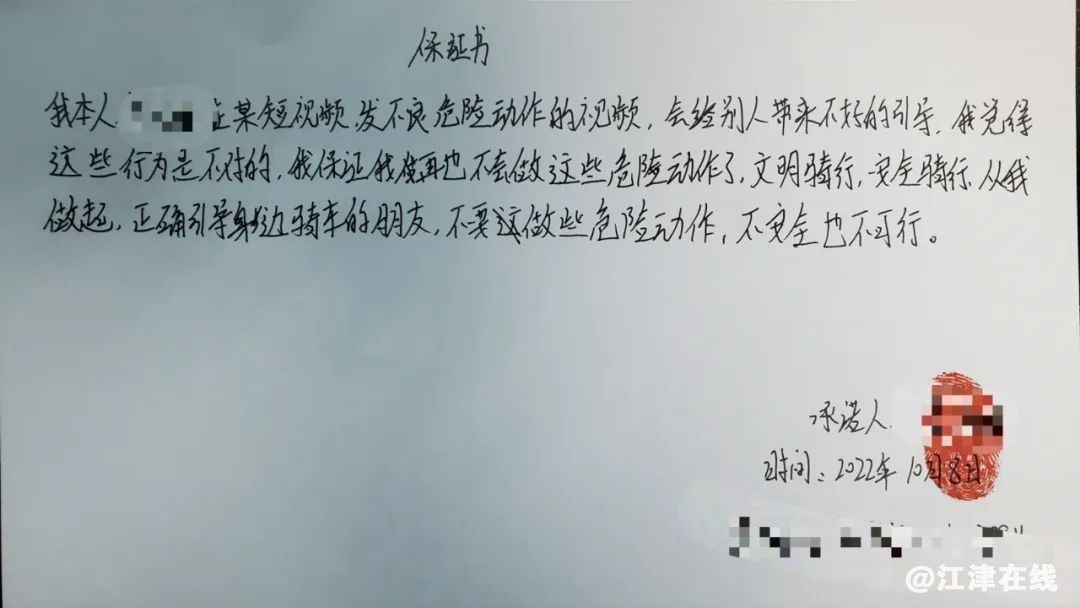 保证书
我本人 在某短视频,发不良危险动作的视频,会给别人带来不好的引导,我觉得
这些行为是不对的,我保证我再也不会做这些危险动作了,文明骑行,安全骑行,从我
做起,正确引导身边骑车的朋友,不要做些危险动作,不安全也不可行。
承诺人
时间:2022年10月8日
@江津在线